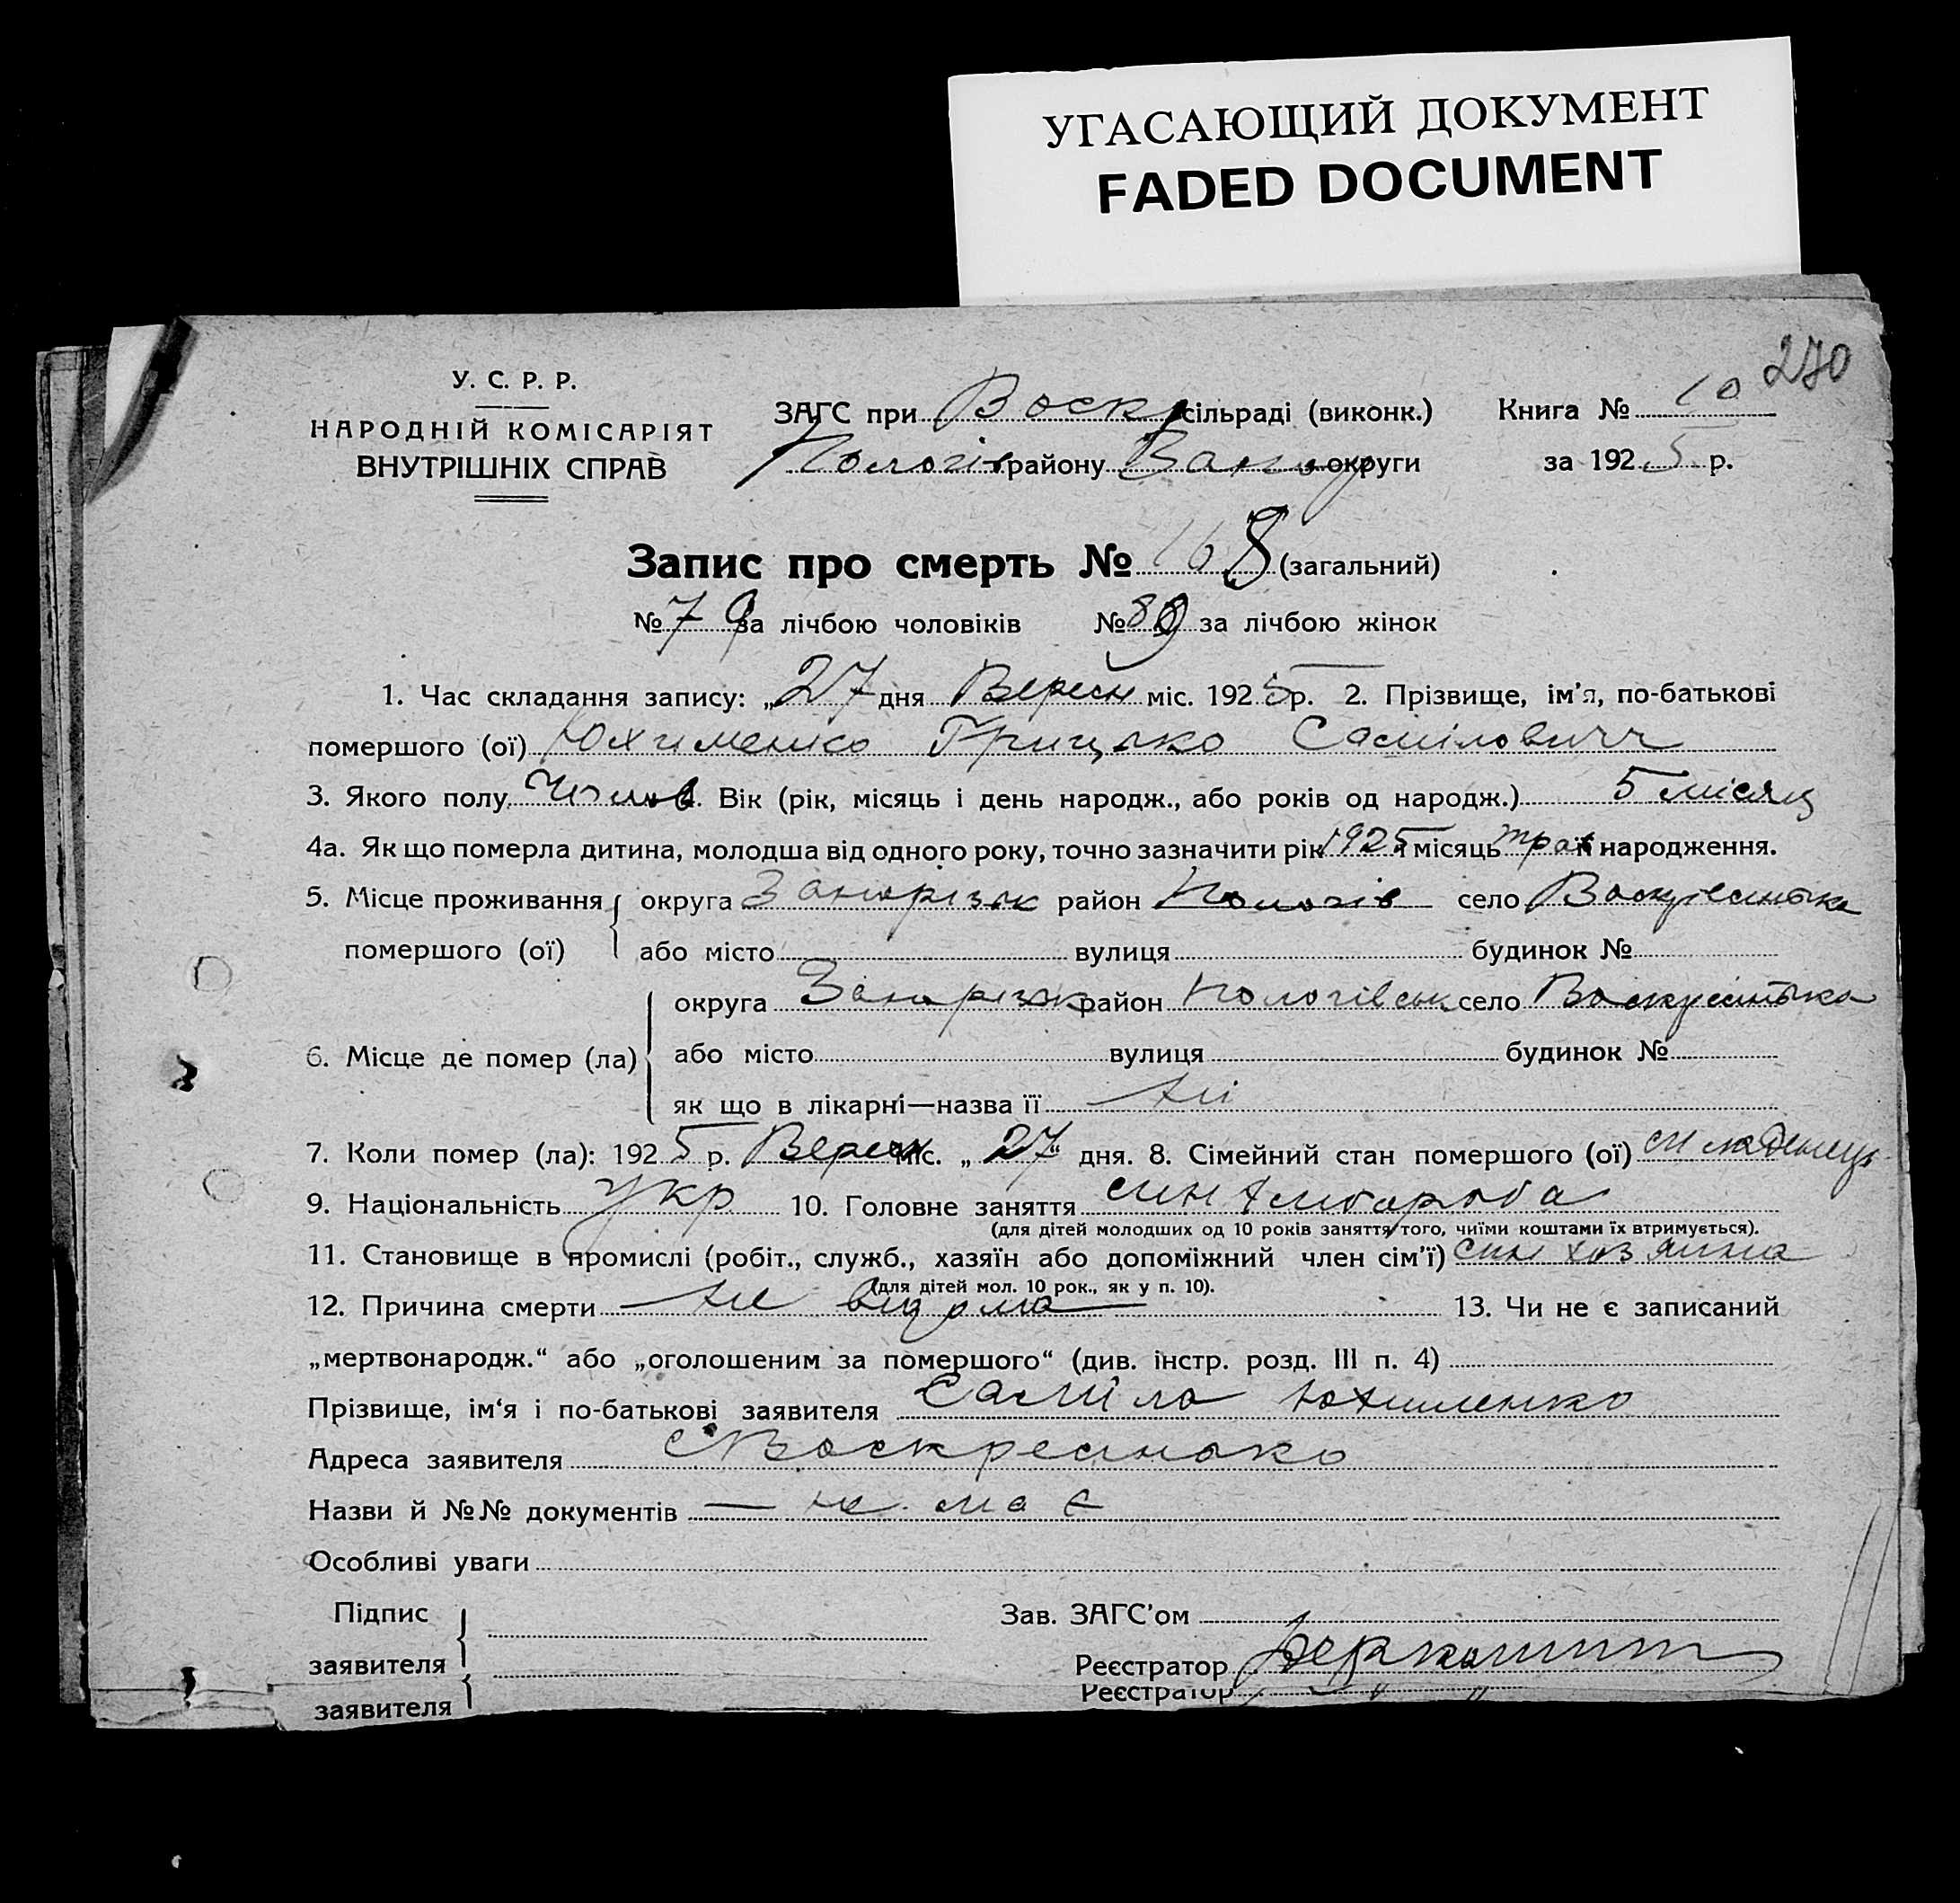 УГАСАЮЩИЙ ДОКУМЕНТ
FADED DOCUMENT
270
У. С. Р. Р.
НАРОДНІЙ КОМІСАРІЯТ
ВНУТРІШНІХ СПРАВ
ЗАГС при Воскр сільраді (виконк.)
Пологів району Запор округи
Книга № 10
за 1925 р.
Запис про смерть № 168 (загальний)
№ 79 за лічбою чоловіків № 89 за лічбою жінок
1. Час складання запису: „27 дня Вересн міс. 1925 р. 2. Прізвище, ім’я, по-батькові
помершого (ої) Юхименко Грицько Самілович
3. Якого полу Чолов. Вік (рік, місяць і день народж., або років од народж.) 5 місяц
4а. Як що померла дитина, молодша від одного року, точно зазначити рік 1925 і місяць трав її народження.
5. Місце проживання помершого (ої) округа Запорізьк район Пологів село Воскресенька
або місто вулиця будинок №
6. Місце де помер (ла) округа Запорізьк район Пологівськ село Воскресенька
або місто вулиця будинок №
як що в лікарні—назва її ні
7. Коли помер (ла): 1925 р. Вересн міс. „27“ дня. 8. Сімейний стан помершого (ої) младенець
9. Національність укр 10. Головне заняття син хлібороба
(для дітей молодших од 10 років заняття того, чиїми коштами їх втримується).
11. Становище в промислі (робіт., служб., хазяїн або допоміжний член сім’ї) син хозяина
(для дітей мол. 10 рок., як у п. 10).
12. Причина смерти не відома 13. Чи не є записаний
„мертвонародж.“ або „оголошеним за помершого“ (див. інстр. розд. III п. 4)
Прізвище, ім‘я і по-батькові заявителя Саміло Юхименко
Адреса заявителя с Воскресенько
Назви й №№ документів — не має
Особливі уваги
Підпис
заявителя
Зав. ЗАГС’ом
Реєстратор
Реєстратор
заявителя